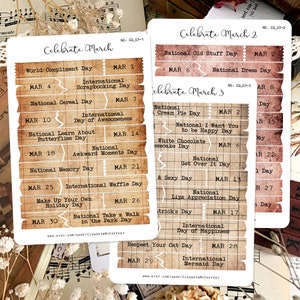 Celebrate March
World Compliment Day MAR 1
MAR 4 International
Scrapbooking Day
National Cereal Day MAR 7
MAR 10 International
Day of Awesomeness
National Learn About
Butterflies Day MAR 14
MAR 18 National
Awkward Moments Day
National Memory Day MAR 21
MAR 25 International Waffle Day
Make Up Your Own
Holiday Day MAR 26
MAR 30 National Take a Walk
in the Park Day
Celebrate March 2
National Old Stuff Day MAR 2
MAR 6 National Dress Day
Celebrate March 3
National
Cream Pie Day MAR 2
National I Want You
to be Happy Day
White Chocolate
Cheesecake Day
National
Get Over It Day
& Sexy Day MAR 13
National
Lips Appreciation Day
Patrick's Day MAR 17
International
Day of Happiness
Respect Your Cat Day MAR 28
MAR 29 International
Mermaid Day